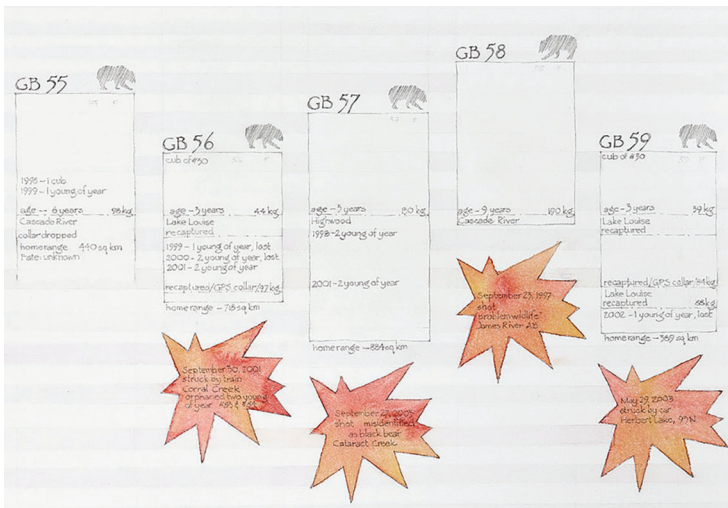 GB 55
1998 - 1 cub
1999 - 1 young of year
age - 6 years 98 kg
Cascade River
collar dropped
home range 440 sq km
Fate: unknown
GB 56
cub of #30
age - 5 years 44 kg
Lake Louise
recaptured
1999 - 1 young of year, lost
2000 - 2 young of year, lost
2001 - 2 young of year
recaptured/GPS collar/97 kg
home range - 718 sq km
September 30, 2001
struck by train
Corral Creek
orphaned two young
of year
GB 57
age - 5 years 80 kg
Highwood
1998 - 2 young of year
2001 - 2 young of year
home range - 884 sq km
September 27, 2003
shot misidentified
as black bear
Cataract Creek
GB 58
age - 9 years 190 kg
Cascade River
September 23, 1997
shot
"problem wildlife"
James River AB
GB 59
cub of #30
age - 3 years 39 kg
Lake Louise
recaptured
recaptured/GPS collar
Lake Louise
recaptured 88 kg
2002 - 1 young of year, lost
home range - 369 sq km
May 29, 2003
struck by car
Herbert Lake, 93N